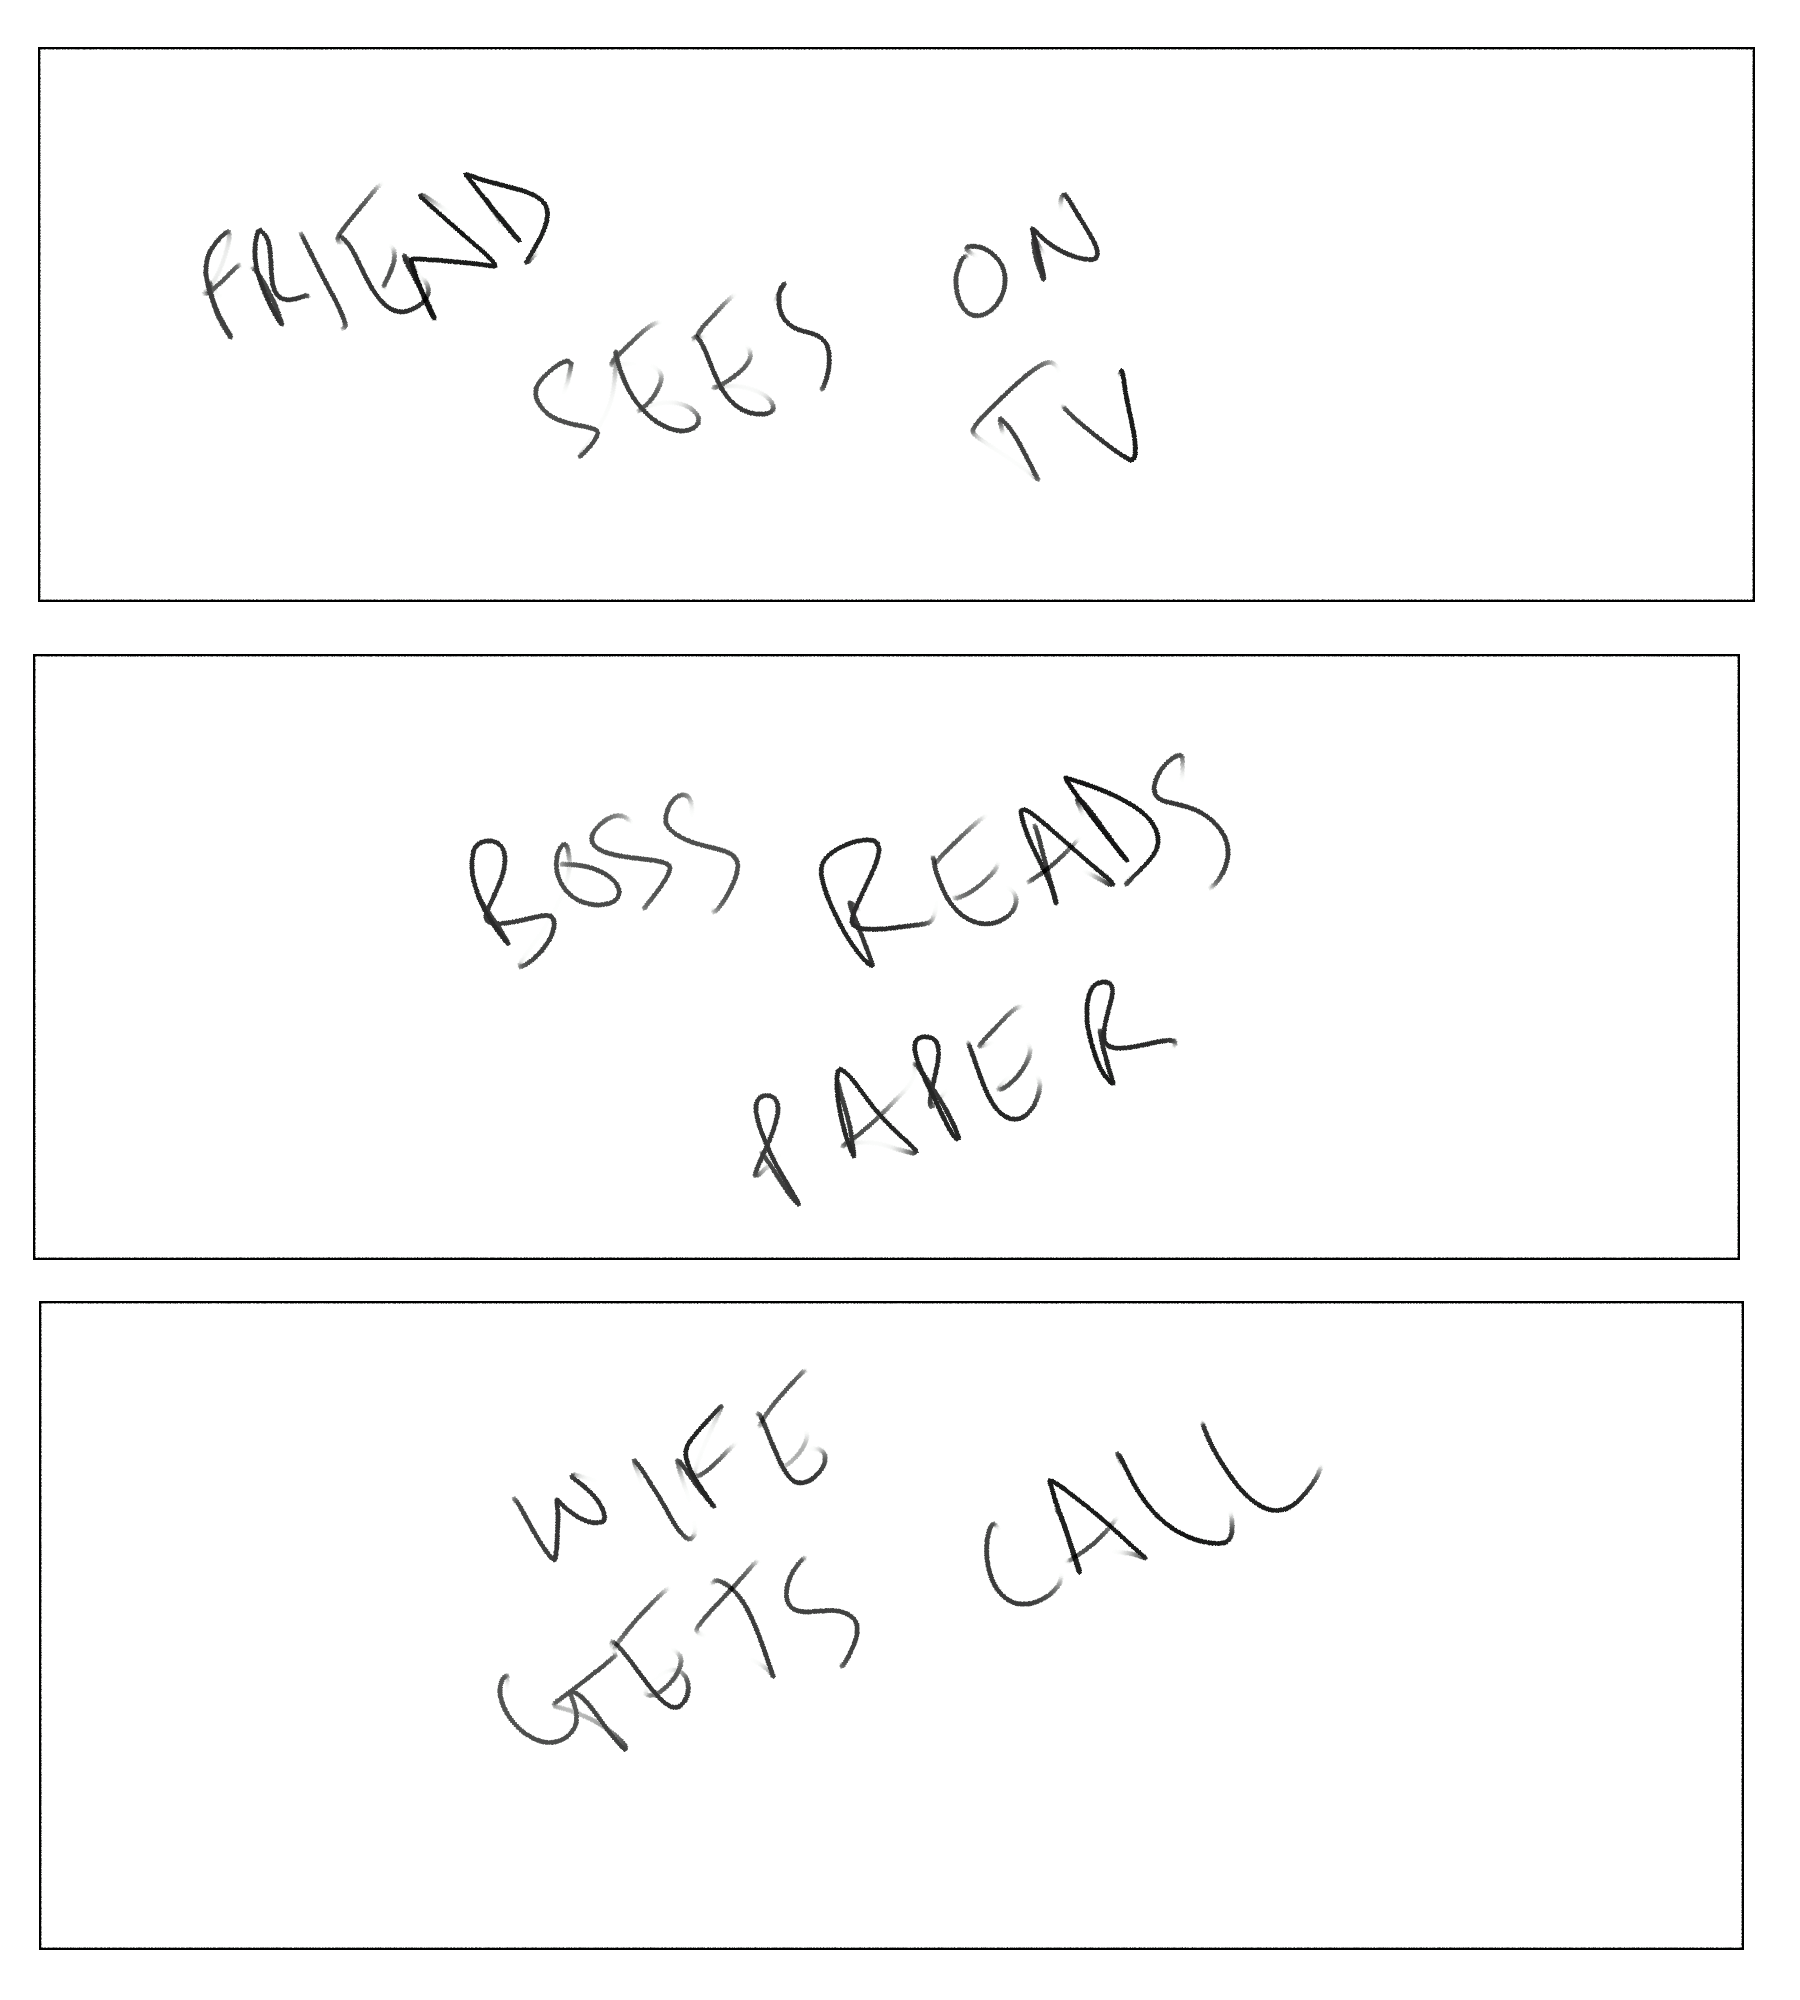 FRIEND SEES ON TV
BOSS READS
PAPER
WIFE
GETS CALL